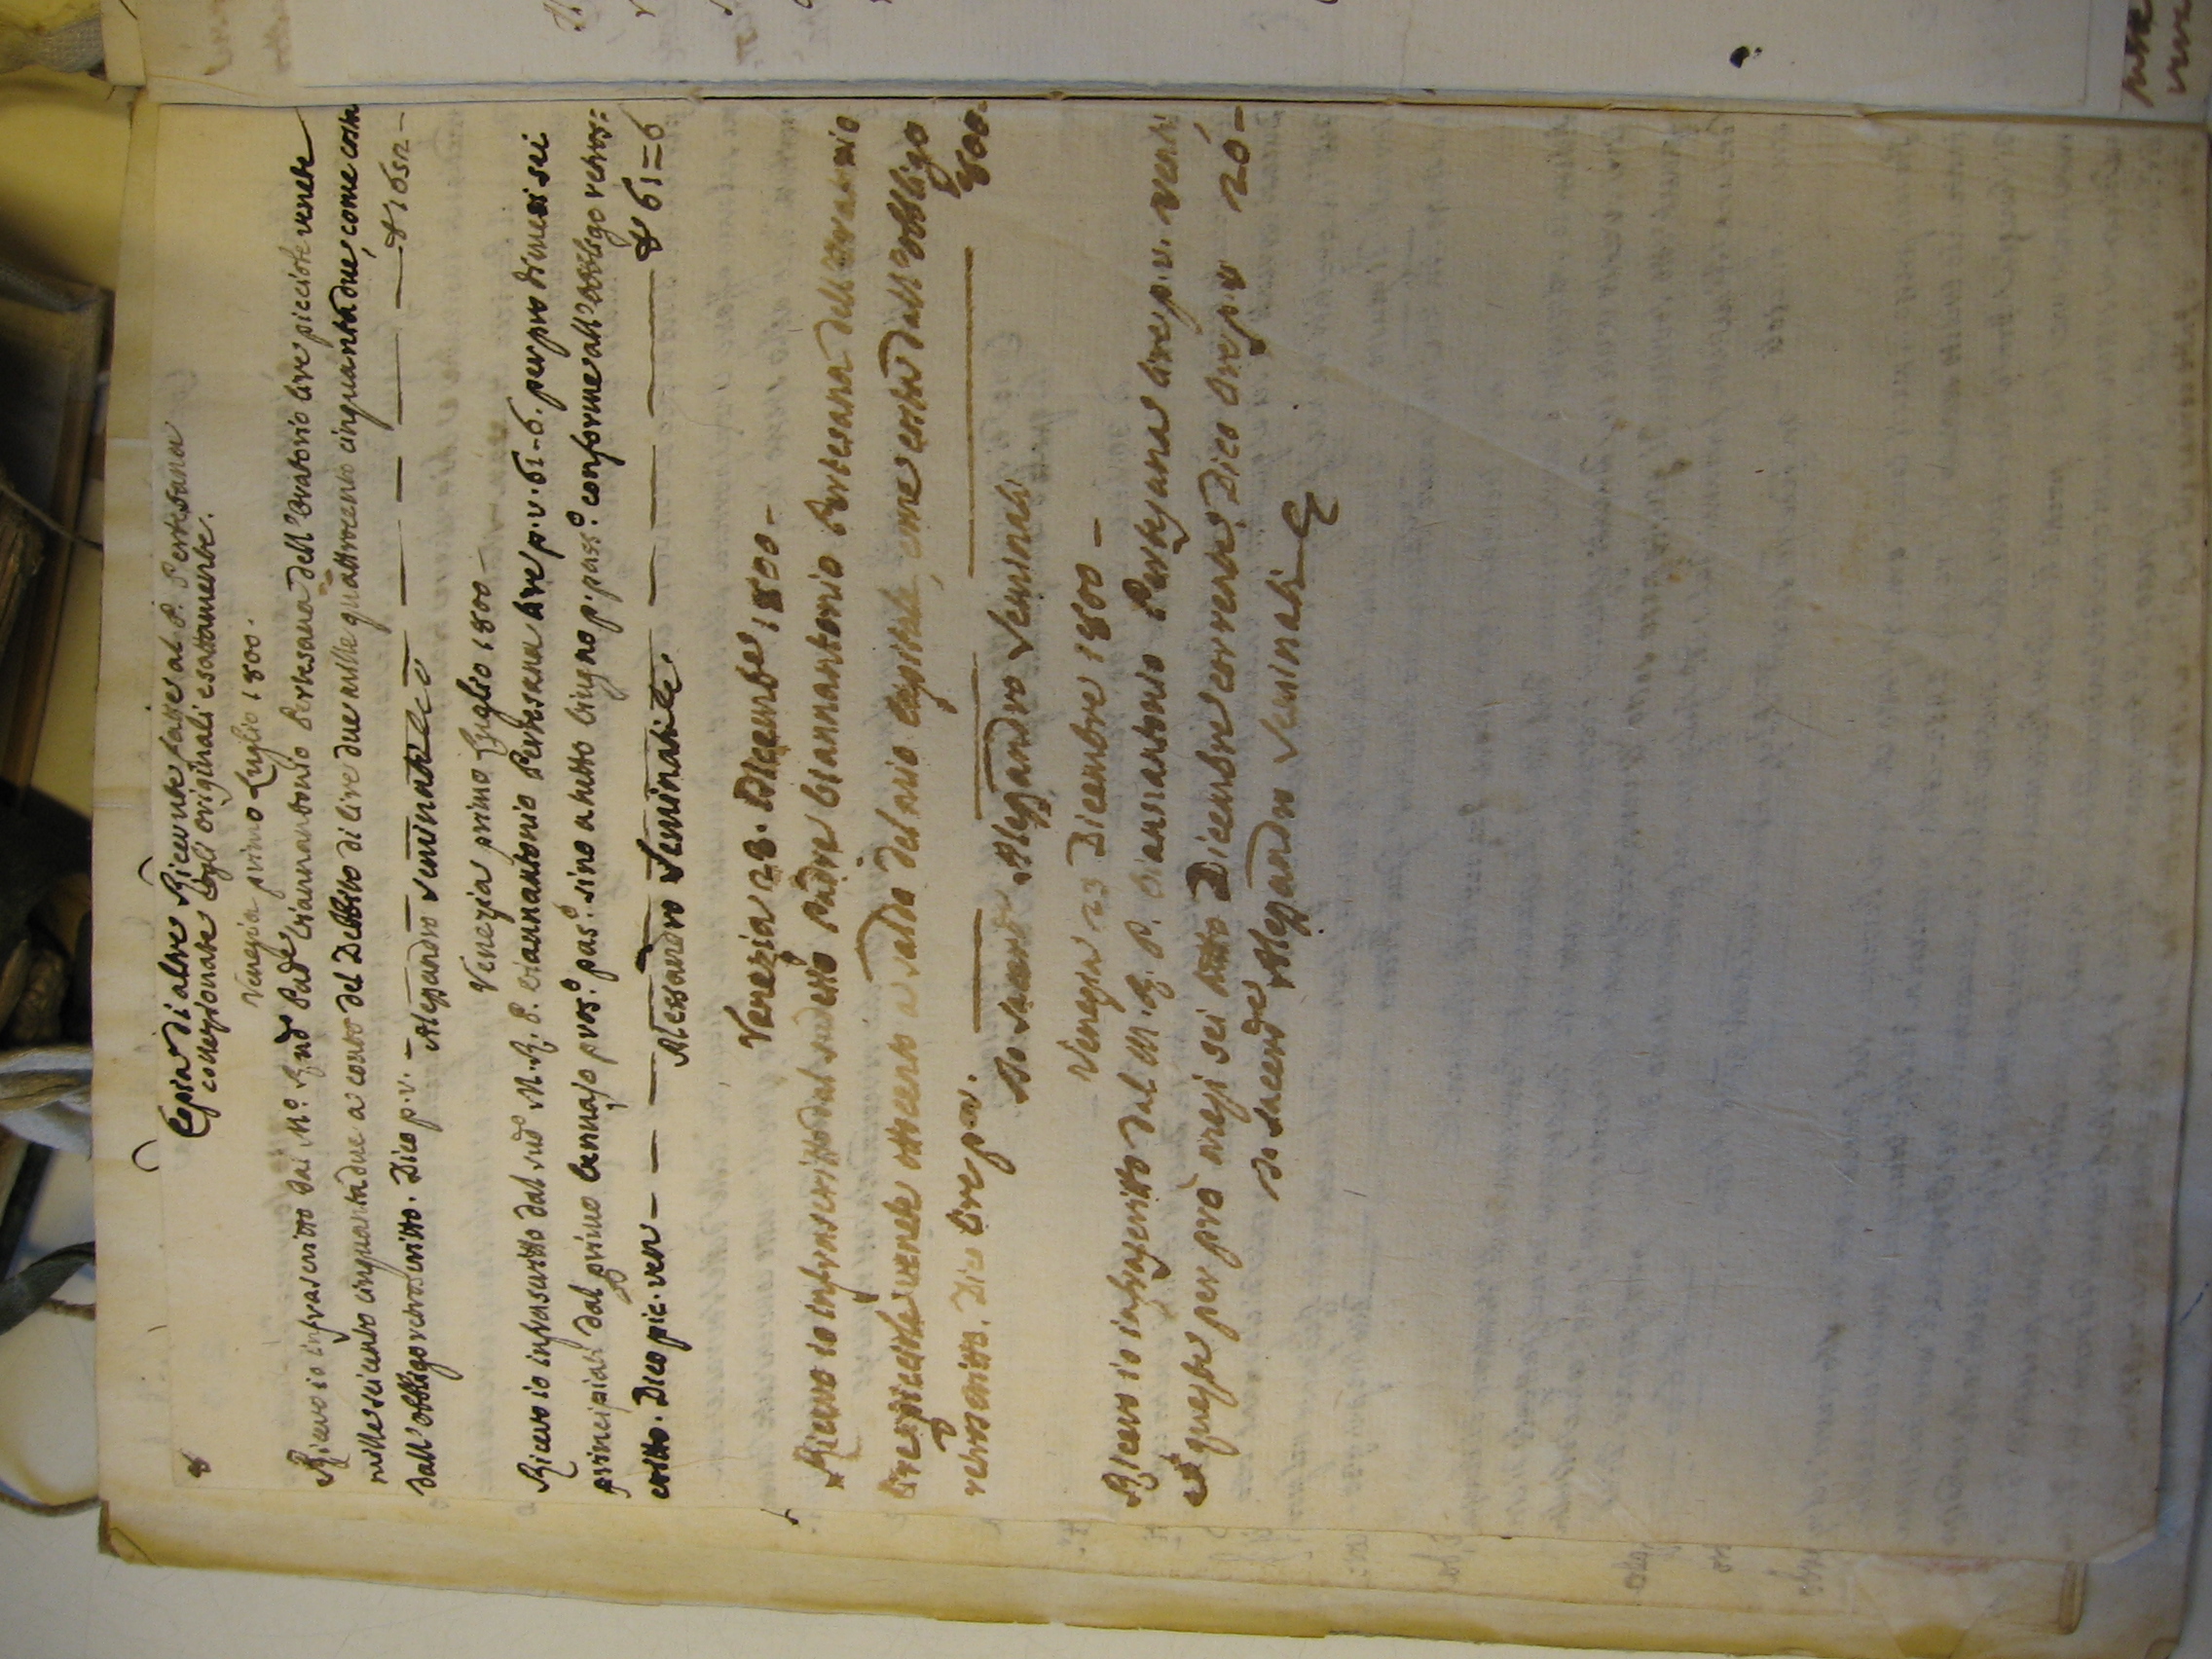 Copia di altre Ricevute fatte al P. Pertesana
collezionate cogli originali esattamente.
Venezia primo Luglio 1800.
Ricevo io infrascritto dal M.º Rnđo Padre Giannantonio Pertesana dell'Oratorio lire picciole venete
mille seicento cinquantadue a conto del Debbito di lire due mille quattrocento cinquantadue, come consta
dall'obbligo retroscritto. Dico p. v. — — — — 1652 —
Alessandro Seminati
Venezia primo Luglio 1800 —
Ricevo io infrascritto dal sud.º M. R. P. Giannantonio Pertesana lire p. v. 61-6. per pro di mesi sei
principiati dal primo Gennajo pros.º pas.º sino a tutto Giugno p. pass.º conforme all'obbligo retros:
critto. Dico pic. ven — — — — — 61=6
Alessandro Seminati
Venezia 23. Dicembre 1800 —
Ricevo io infrascritto dal sudetto Padre Giannantonio Pertesana dell'Oratorio
lire picciole venete ottocento a saldo del mio Capitale, come consta dall'obbligo
retroscritto. Dico lire p. v. — — — — 800.
Io Sacerdote Alessandro Seminati
Venezia 23 Dicembre 1800 —
Ricevo io infrascritto dal M. R. P. Giannantonio Pertesana lire p. v. venti
e queste per pro mesi sei tutto Dicembre corrente, Dico lire p. v. 20 —
Io Sacerdote Alessandro Seminati